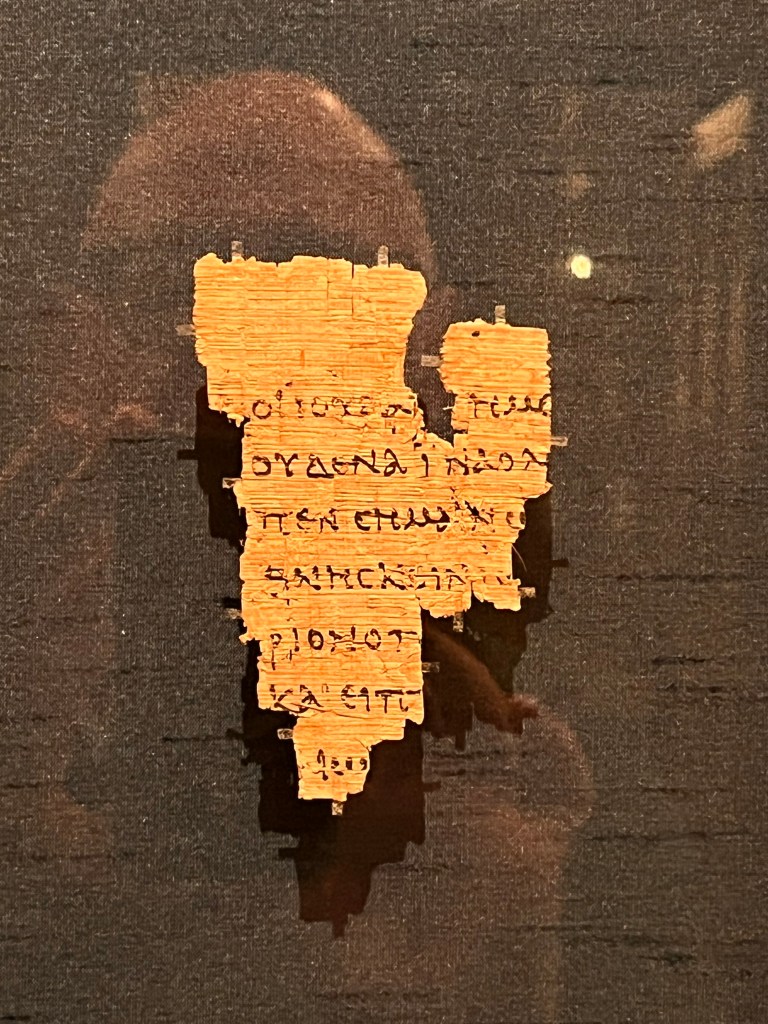 ΟΙ ΙΟΥΔΑΙ ΗΜΙ
ΟΥΔΕΝΑ ΙΝΑ Ο Λ
ΠΕΝ ΣΗΜΑΙΝΩ
ΘΝΗΣΚΕΙΝ
ΡΙΟΝ Ο Π
ΚΑΙ ΕΙΠ